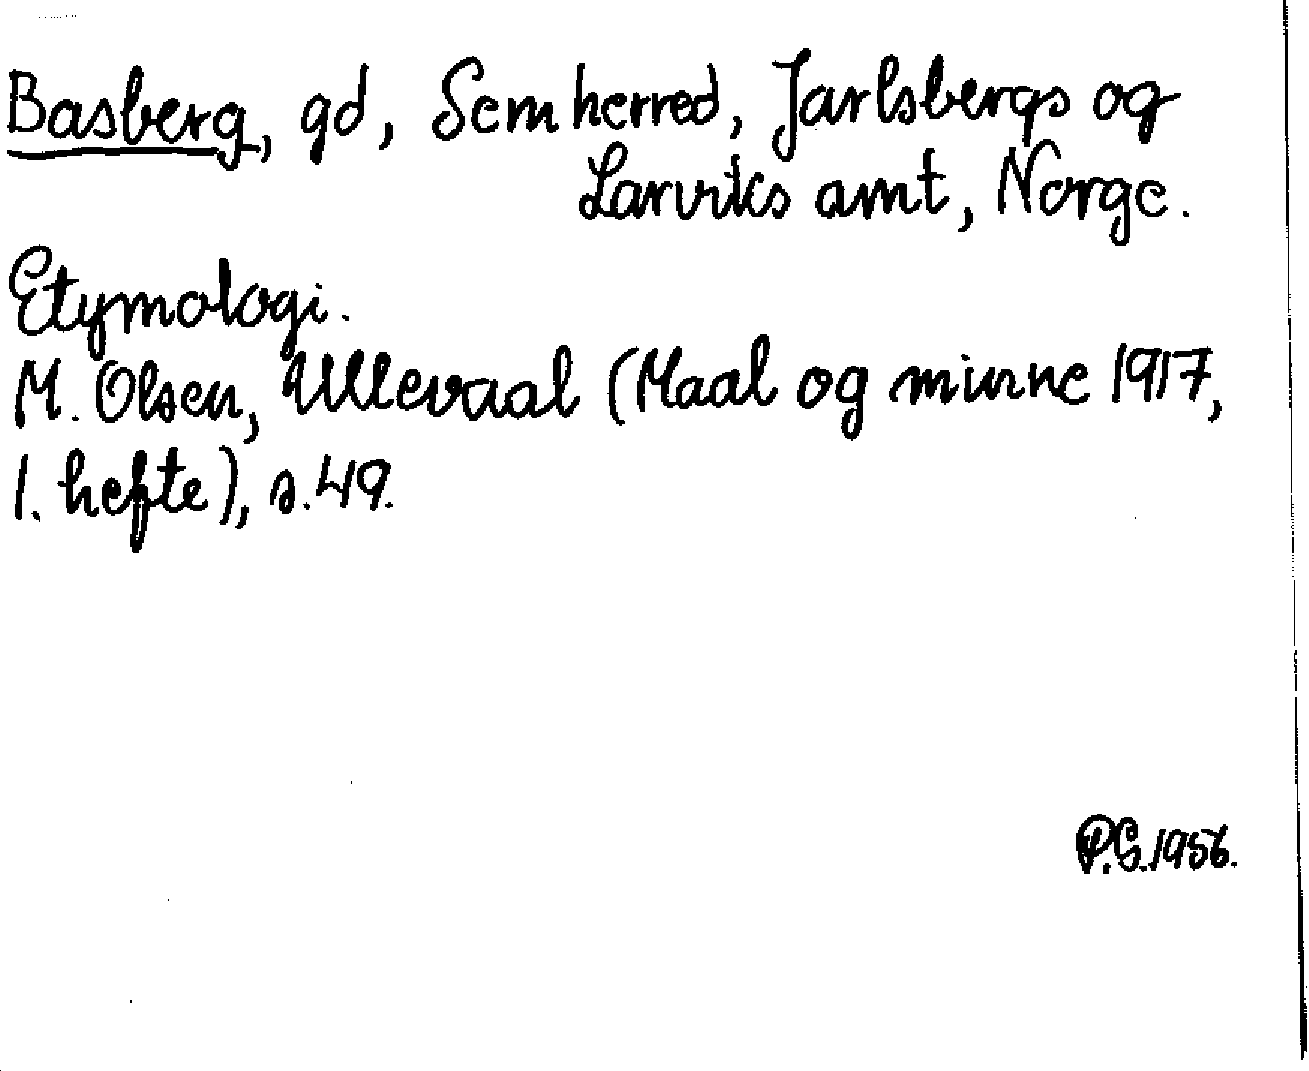 Basberg, gd, Sem herred, Jarlsbergs og
Larviks amt, Norge.
Etymologi.
M. Olsen, Ullevaal (Maal og minne 1917,
1. hefte), s. 49.
P.G. 1956.